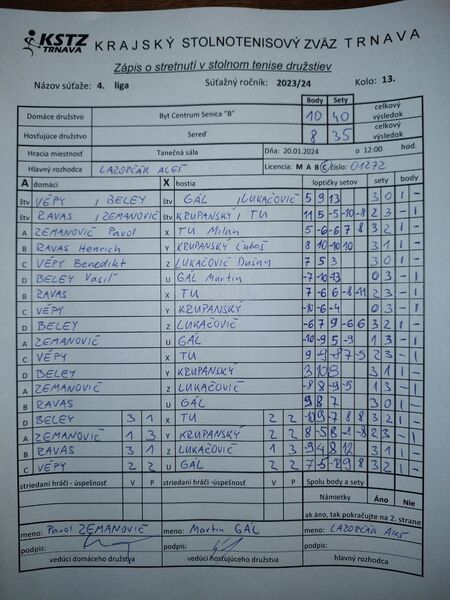 KSTZ TRNAVA KRAJSKÝ STOLNOTENISOVÝ ZVÄZ TRNAVA
Zápis o stretnutí v stolnom tenise družstiev
Názov súťaže: 4. liga Súťažný ročník: 2023/24 Kolo: 13.
Body Sety celkový
Domáce družstvo Byt Centrum Senica "B" 10 40 výsledok
Hosťujúce družstvo Sereď 8 35 celkový výsledok
Hracia miestnosť Tanečná sála Dňa: 20.01.2024 o 12:00 hod.
Hlavný rozhodca LAZORČÁK ALEŠ Licencia: M A B C číslo: 01272
A domáci X hostia loptičky setov sety body
štv VÉPY / BELEY štv GÁL / LUKAČOVIČ 5 9 13 3 0 1 -
štv RAVAS / ZEMANOVIČ štv KRUPANSKÝ / TU 11 5 -5 -10 -8 2 3 - 1
A ZEMANOVIČ Pavol X TU Milan 5 -6 -6 7 8 3 2 1 -
B RAVAS Henrich Y KRUPANSKÝ Ľuboš 8 10 -10 10 3 1 1 -
C VÉPY Benedikt Z LUKAČOVIČ Dušan 7 5 3 3 0 1 -
D BELEY Vasiľ U GÁL Martin -7 -10 -13 0 3 - 1
B RAVAS X TU 7 -6 6 -8 -11 2 3 - 1
C VÉPY Y KRUPANSKÝ -10 -6 -4 0 3 - 1
D BELEY Z LUKAČOVIČ -6 7 9 -6 6 3 2 1 -
A ZEMANOVIČ U GÁL -10 -9 5 -9 1 3 - 1
C VÉPY X TU 2 3 - 1
D BELEY Y KRUPANSKÝ 3 10 8 3 1 -
A ZEMANOVIČ Z LUKAČOVIČ -8 8 -9 -5 1 3 - 1
B RAVAS U GÁL 9 8 7 3 0 1 -
D BELEY 3 1 X TU 2 2 7 8 8 3 2 1 -
A ZEMANOVIČ 1 3 Y KRUPANSKÝ 2 2 8 -5 8 -8 -8 2 3 - 1
B RAVAS 3 1 Z LUKAČOVIČ 1 3 -9 4 8 12 3 1 1 -
C VÉPY 2 2 U GÁL 2 2 7 5 9 8 3 2 1 -
striedaní hráči - úspešnosť V P striedaní hráči - úspešnosť V P Spolu body a sety
Námietky Áno Nie
ak áno, tak pokračujte na 2. strane
meno: Pavol ZEMANOVIČ meno: Martin GÁL meno: LAZORČÁK ALEŠ
podpis: podpis: podpis:
vedúci domáceho družstva vedúci hosťujúceho družstva hlavný rozhodca